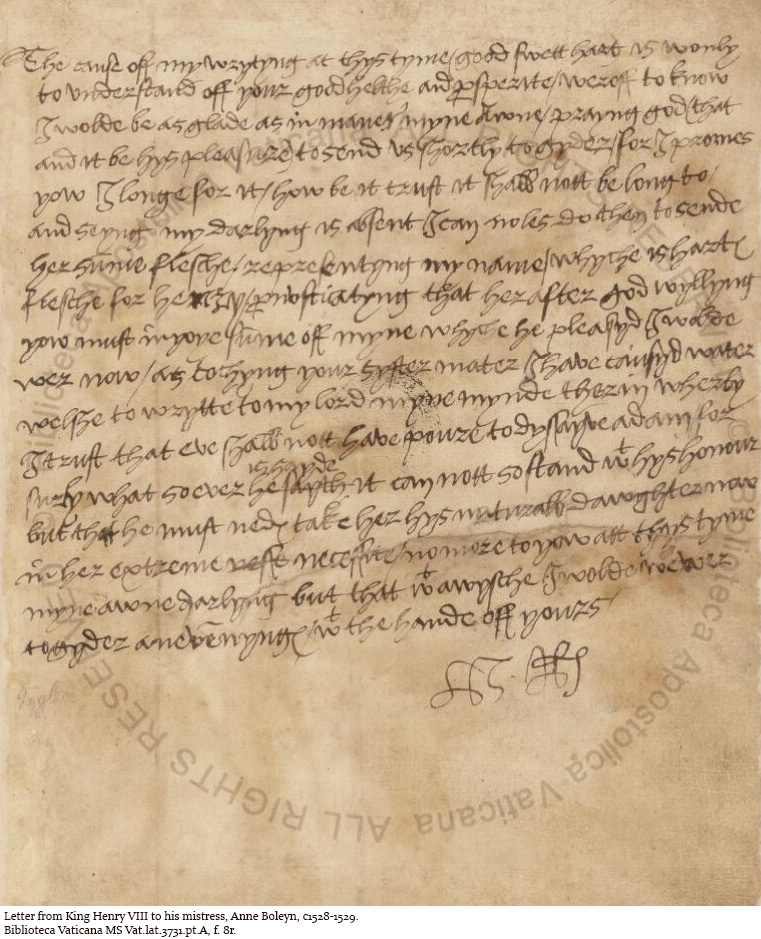 The cause off my wrytyng at thys tyme / good swett hart is wonly
to understand off your good helthe and ꝑsperite / weroff to know
I wolde be as glade as in maner myne awne / prayng god that
and it be hys pleasure / to send us shortly togyder / for I promes
yow I longe for it / how be it trust it shall nott be long to /
and seyng my darlyng is absent I can no les do then to sende
her sume flesche / representyng my name / whyche is hart
flesche for henry / ꝑnosticatyng that her after god wyllyng
yow must inyoye sume off myne whyche he pleasyd I wolde
wer now / as tochyng your syster mater I have causyd water
welsze to wrytte to my lord myne mynde therin wherby
I trust that eve shall nott have poure to dyssayve adam for
surly what so ever he sayth it can nott so stand wt hys honour
is sayde
but that he must nedes take her hys naturall dawghter now
in her extreme necessite / no more to yow att thys tyme
myne awne darlyng but that wt a wysche I wolde we wer
togyder an evenyng / wt the hande off yours /
Biblioteca Apostolica Vaticana ALL RIGHTS RESERVED
Letter from King Henry VIII to his mistress, Anne Boleyn, c1528-1529.
Biblioteca Vaticana MS Vat.lat.3731.pt.A, f. 8r.